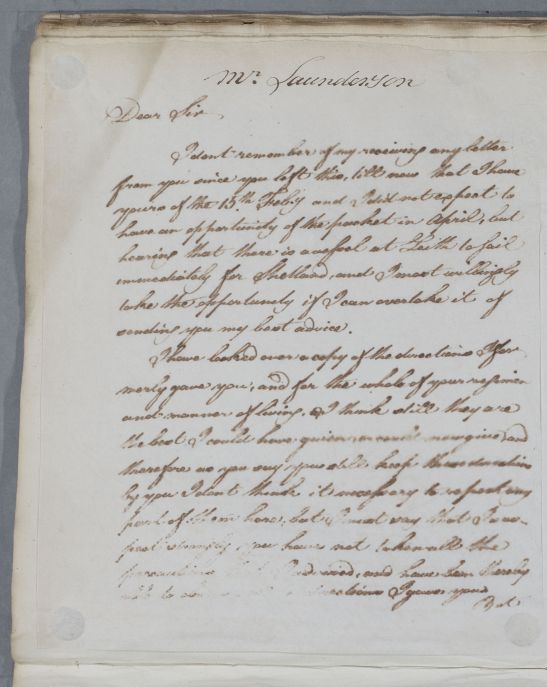 Mr. Saunderson
Dear Sir
I dont remember of my receiving any letter
from you since you left this, till now that I have
yours of the 15th Feby and I did not expect to
have an opportunity of the packet in April, but
hearing that there is a vessel at Leith to sail
immediately for Shetland, and I most willingly
take the opportunity if I can overtake it of
sending you my best advice.
I have looked over a copy of the directions I for
merly gave you, and for the whole of your regimen
and manner of living, I think still they are
the best I could have given or could now give, and
therefore as you say you still keep these directions
by you I dont think it necessary to repeat any
part of them here, but I must say that I sus-
pect you have not taken all the
and have been
to directions I gave you
But